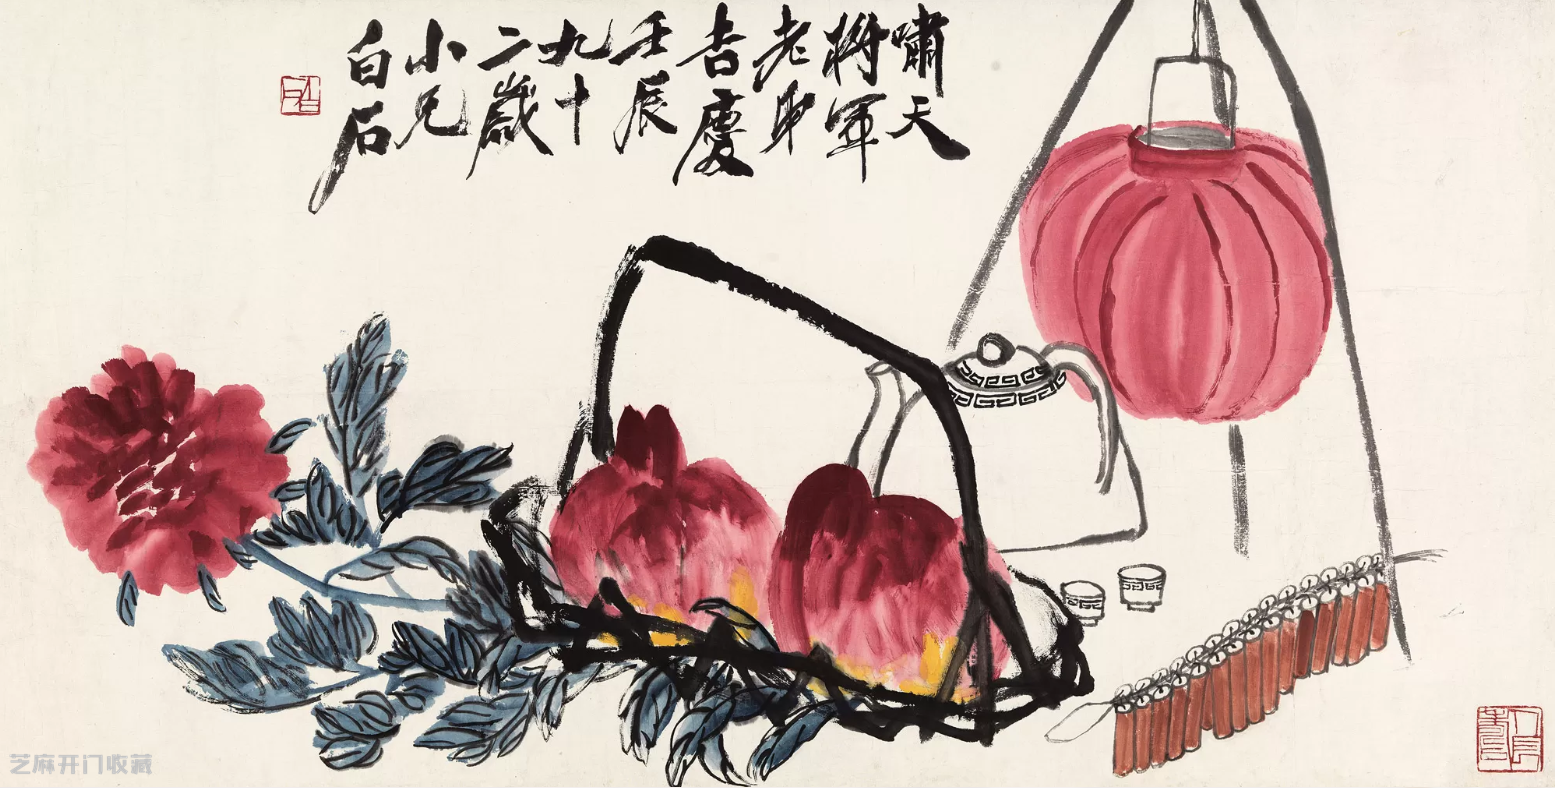 嘯天
將軍
老
吉慶
壬辰
九十
二歲
小兄
白石
人長壽
芝麻开门收藏